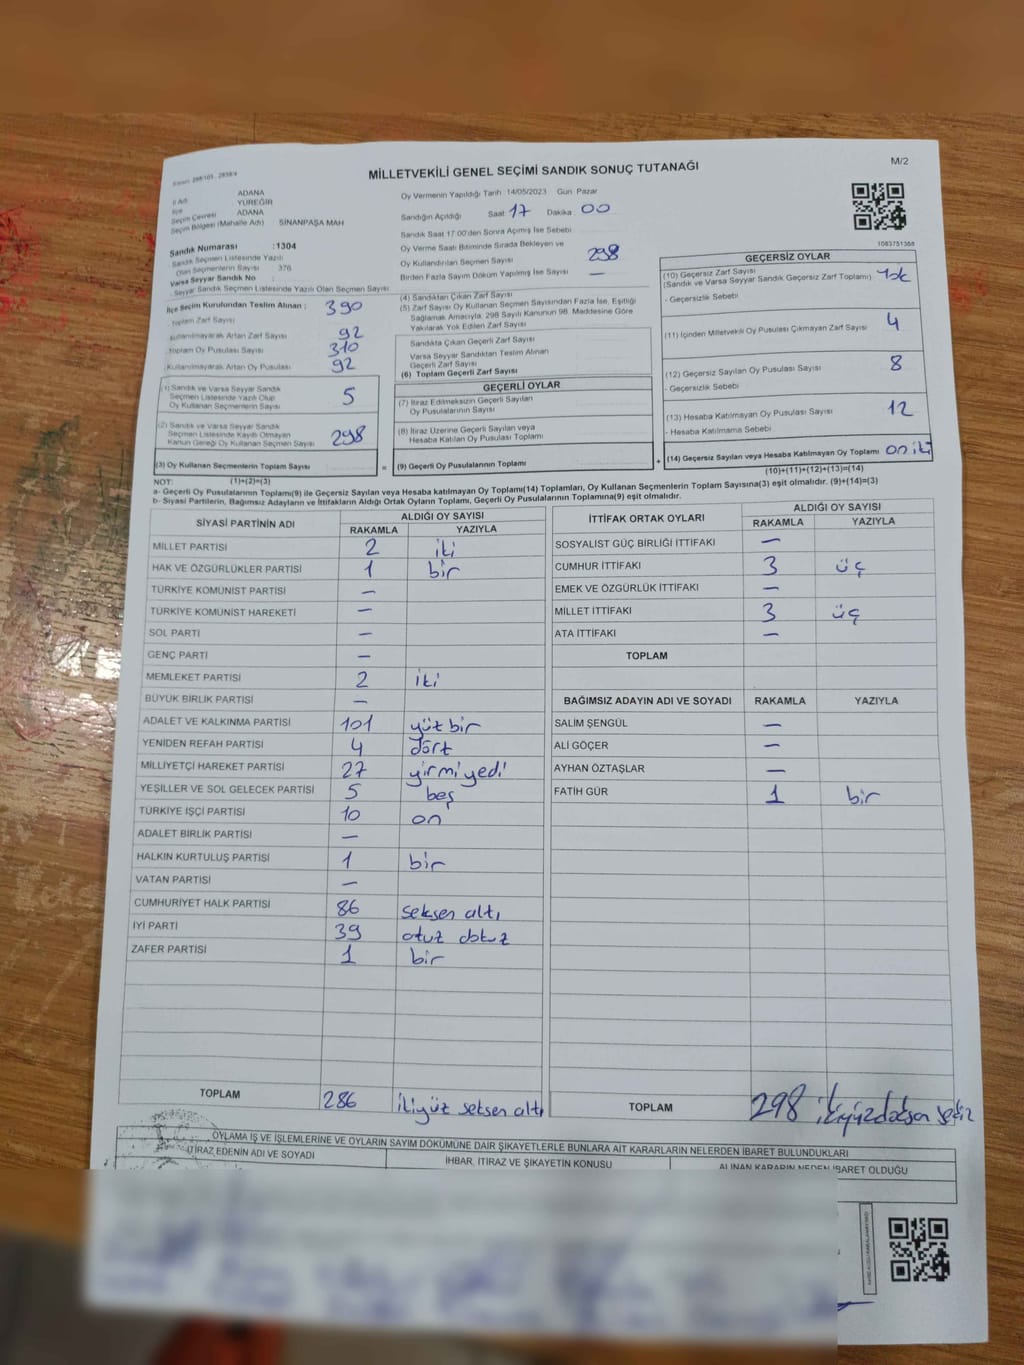 MİLLETVEKİLİ GENEL SEÇİMİ SANDIK SONUÇ TUTANAĞI
M/2
İl Adı ADANA
İlçe YÜREĞİR
Seçim Çevresi ADANA
Seçim Bölgesi (Mahalle Adı) SİNANPAŞA MAH
Sandık Numarası : 1304
Sandık Seçmen Listesinde Yazılı
Olan Seçmenlerin Sayısı 376
Varsa Seyyar Sandık No
Seyyar Sandık Seçmen Listesinde Yazılı Olan Seçmen Sayısı
Oy Vermenin Yapıldığı Tarih 14/05/2023 Gün Pazar
Sandığın Açıldığı Saat 17 Dakika 00
Sandık Saat 17.00'den Sonra Açılmış İse Sebebi
Oy Verme Saati Bitiminde Sırada Bekleyen ve
Oy Kullandırılan Seçmen Sayısı 298
Birden Fazla Sayım Döküm Yapılmış İse Sayısı —
1083751368
İlçe Seçim Kurulundan Teslim Alınan : 390
Toplam Zarf Sayısı
Kullanılmayarak Artan Zarf Sayısı 92
Toplam Oy Pusulası Sayısı 310
Kullanılmayarak Artan Oy Pusulası 92
(1) Sandık ve Varsa Seyyar Sandık
Seçmen Listesinde Yazılı Olup
Oy Kullanan Seçmenlerin Sayısı 5
(2) Sandık ve Varsa Seyyar Sandık
Seçmen Listesinde Kayıtlı Olmayan
Kanun Gereği Oy Kullanan Seçmen Sayısı 298
(3) Oy Kullanan Seçmenlerin Toplam Sayısı
(1)+(2)=(3)
(4) Sandıktan Çıkan Zarf Sayısı
(5) Zarf Sayısı Oy Kullanan Seçmen Sayısından Fazla İse, Eşitliği
Sağlamak Amacıyla, 298 Sayılı Kanunun 98. Maddesine Göre
Yakılarak Yok Edilen Zarf Sayısı
Sandıkta Çıkan Geçerli Zarf Sayısı
Varsa Seyyar Sandıktan Teslim Alınan
Geçerli Zarf Sayısı
(6) Toplam Geçerli Zarf Sayısı
GEÇERLİ OYLAR
(7) İtiraz Edilmeksizin Geçerli Sayılan
Oy Pusulalarının Sayısı
(8) İtiraz Üzerine Geçerli Sayılan veya
Hesaba Katılan Oy Pusulası Toplamı
= (9) Geçerli Oy Pusulalarının Toplamı
GEÇERSİZ OYLAR
(10) Geçersiz Zarf Sayısı
(Sandık ve Varsa Seyyar Sandık Geçersiz Zarf Toplamı) Yok
- Geçersizlik Sebebi
(11) İçinden Milletvekili Oy Pusulası Çıkmayan Zarf Sayısı 4
(12) Geçersiz Sayılan Oy Pusulası Sayısı 8
- Geçersizlik Sebebi
(13) Hesaba Katılmayan Oy Pusulası Sayısı 12
- Hesaba Katılmama Sebebi
+ (14) Geçersiz Sayılan veya Hesaba Katılmayan Oy Toplamı on iki
(10)+(11)+(12)+(13)=(14)
NOT:
a- Geçerli Oy Pusulalarının Toplamı(9) ile Geçersiz Sayılan veya Hesaba katılmayan Oy Toplamı(14) Toplamları, Oy Kullanan Seçmenlerin Toplam Sayısına(3) eşit olmalıdır. (9)+(14)=(3)
b- Siyasi Partilerin, Bağımsız Adayların ve İttifakların Aldığı Ortak Oyların Toplamı, Geçerli Oy Pusulalarının Toplamına(9) eşit olmalıdır.
SİYASİ PARTİNİN ADI ALDIĞI OY SAYISI
RAKAMLA YAZIYLA
MİLLET PARTİSİ 2 iki
HAK VE ÖZGÜRLÜKLER PARTİSİ 1 bir
TÜRKİYE KOMÜNİST PARTİSİ —
TÜRKİYE KOMÜNİST HAREKETİ —
SOL PARTİ —
GENÇ PARTİ —
MEMLEKET PARTİSİ 2 iki
BÜYÜK BİRLİK PARTİSİ —
ADALET VE KALKINMA PARTİSİ 101 yüz bir
YENİDEN REFAH PARTİSİ 4 dört
MİLLİYETÇİ HAREKET PARTİSİ 27 yirmi yedi
YEŞİLLER VE SOL GELECEK PARTİSİ 5 beş
TÜRKİYE İŞÇİ PARTİSİ 10 on
ADALET BİRLİK PARTİSİ —
HALKIN KURTULUŞ PARTİSİ 1 bir
VATAN PARTİSİ —
CUMHURİYET HALK PARTİSİ 86 seksen altı
İYİ PARTİ 39 otuz dokuz
ZAFER PARTİSİ 1 bir
TOPLAM 286 ikiyüz seksen altı
İTTİFAK ORTAK OYLARI ALDIĞI OY SAYISI
RAKAMLA YAZIYLA
SOSYALİST GÜÇ BİRLİĞİ İTTİFAKI —
CUMHUR İTTİFAKI 3 üç
EMEK VE ÖZGÜRLÜK İTTİFAKI —
MİLLET İTTİFAKI 3 üç
ATA İTTİFAKI —
TOPLAM
BAĞIMSIZ ADAYIN ADI VE SOYADI RAKAMLA YAZIYLA
SALİM ŞENGÜL —
ALİ GÖÇER —
AYHAN ÖZTAŞLAR —
FATİH GÜR 1 bir
TOPLAM 298
OYLAMA İŞ VE İŞLEMLERİNE VE OYLARIN SAYIM DÖKÜMÜNE DAİR ŞİKAYETLERLE BUNLARA AİT KARARLARIN NELERDEN İBARET BULUNDUKLARI
İTİRAZ EDENİN ADI VE SOYADI
İHBAR, İTİRAZ VE ŞİKAYETİN KONUSU
ALINAN KARARIN NEDEN İBARET OLDUĞU